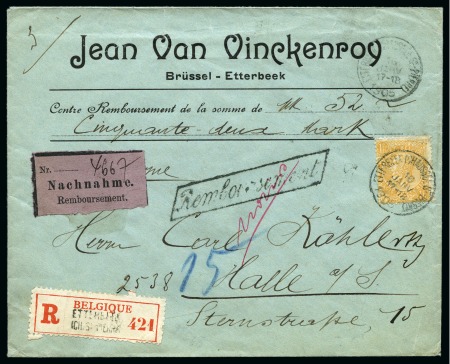 Jean Van Vinckenroy
Brüssel - Etterbeek
Contre Remboursement de la somme de M 52
Cinquante-deux Mark
Nr. 4667
Nachnahme.
Remboursement.
Remboursement
Herrn Carl Köhler
2538 15 Halle a/S
Sternstraße, 15
R BELGIQUE
ETTERBEEK
421